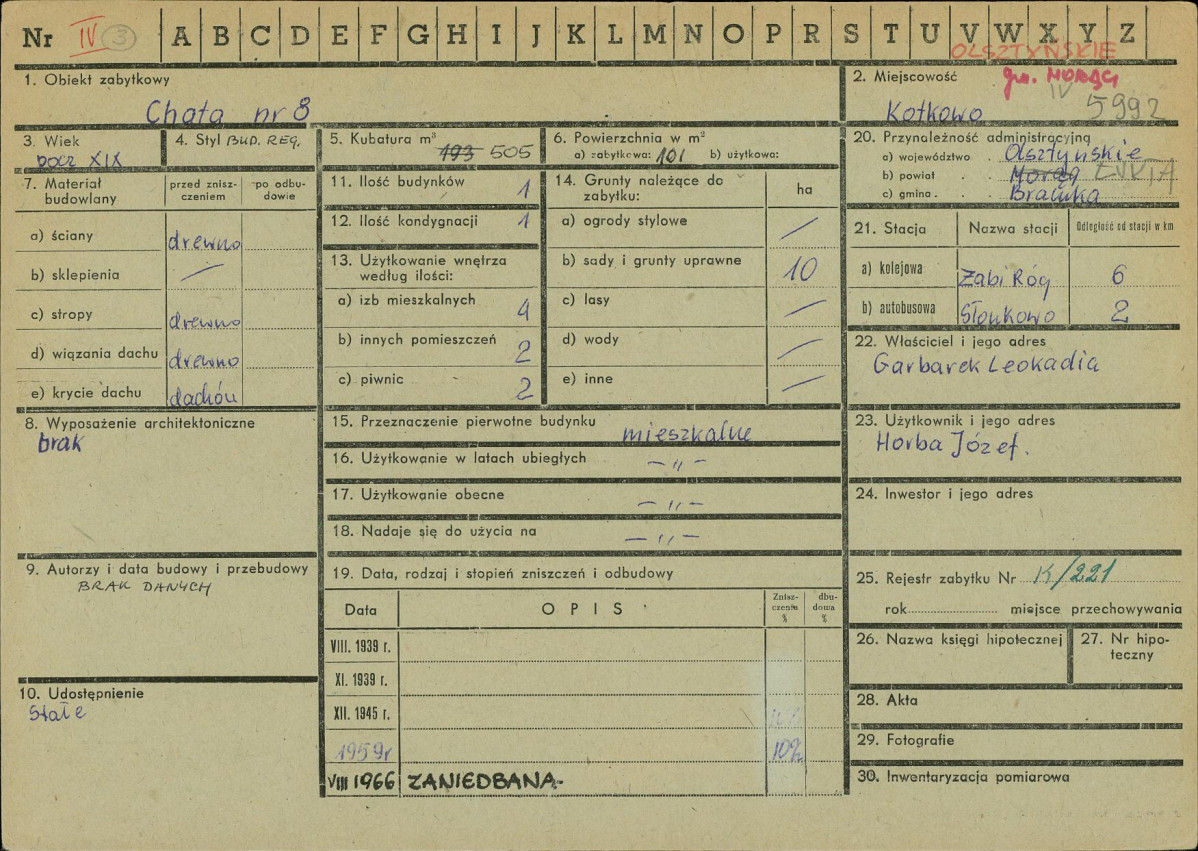 Nr IV 3 A B C D E F G H I J K L M N O P R S T U V W X Y Z
OLSZTYŃSKIE
1. Obiekt zabytkowy
Chata nr 8
2. Miejscowość gm. MORĄG
IV 5992
Kotkowo
3. Wiek
pocz XIX
4. Styl BUD. REG.
5. Kubatura m³
193 505
6. Powierzchnia w m²
a) zabytkowa: 101 b) użytkowa:
20. Przynależność administracyjna
a) województwo Olsztyńskie
b) powiat Morąg
c) gmina
7. Materiał budowlany
przed zniszczeniem
po odbudowie
a) ściany drewno
b) sklepienia —
c) stropy drewno
d) wiązania dachu drewno
e) krycie dachu dachów
11. Ilość budynków 1
12. Ilość kondygnacji 1
13. Użytkowanie wnętrza według ilości:
a) izb mieszkalnych 4
b) innych pomieszczeń 2
c) piwnic 2
14. Grunty należące do zabytku: ha
a) ogrody stylowe —
b) sady i grunty uprawne 10
c) lasy —
d) wody —
e) inne —
21. Stacja Nazwa stacji Odległość od stacji w km
a) kolejowa Żabi Róg 6
b) autobusowa Słonkowo 2
22. Właściciel i jego adres
Garbarek Leokadia
8. Wyposażenie architektoniczne
brak
15. Przeznaczenie pierwotne budynku mieszkalne
16. Użytkowanie w latach ubiegłych — „ —
17. Użytkowanie obecne — „ —
18. Nadaje się do użycia na — „ —
23. Użytkownik i jego adres
Horba Józef.
24. Inwestor i jego adres
9. Autorzy i data budowy i przebudowy
BRAK DANYCH
19. Data, rodzaj i stopień zniszczeń i odbudowy
Data OPIS Zniszczenia % dbudowa %
VIII. 1939 r.
XI. 1939 r.
XII. 1945 r.
1959r 10%
VIII 1966 ZANIEDBANA.
25. Rejestr zabytku Nr K/221
rok miejsce przechowywania
26. Nazwa księgi hipotecznej
27. Nr hipoteczny
10. Udostępnienie
stałe
28. Akta
29. Fotografie
30. Inwentaryzacja pomiarowa